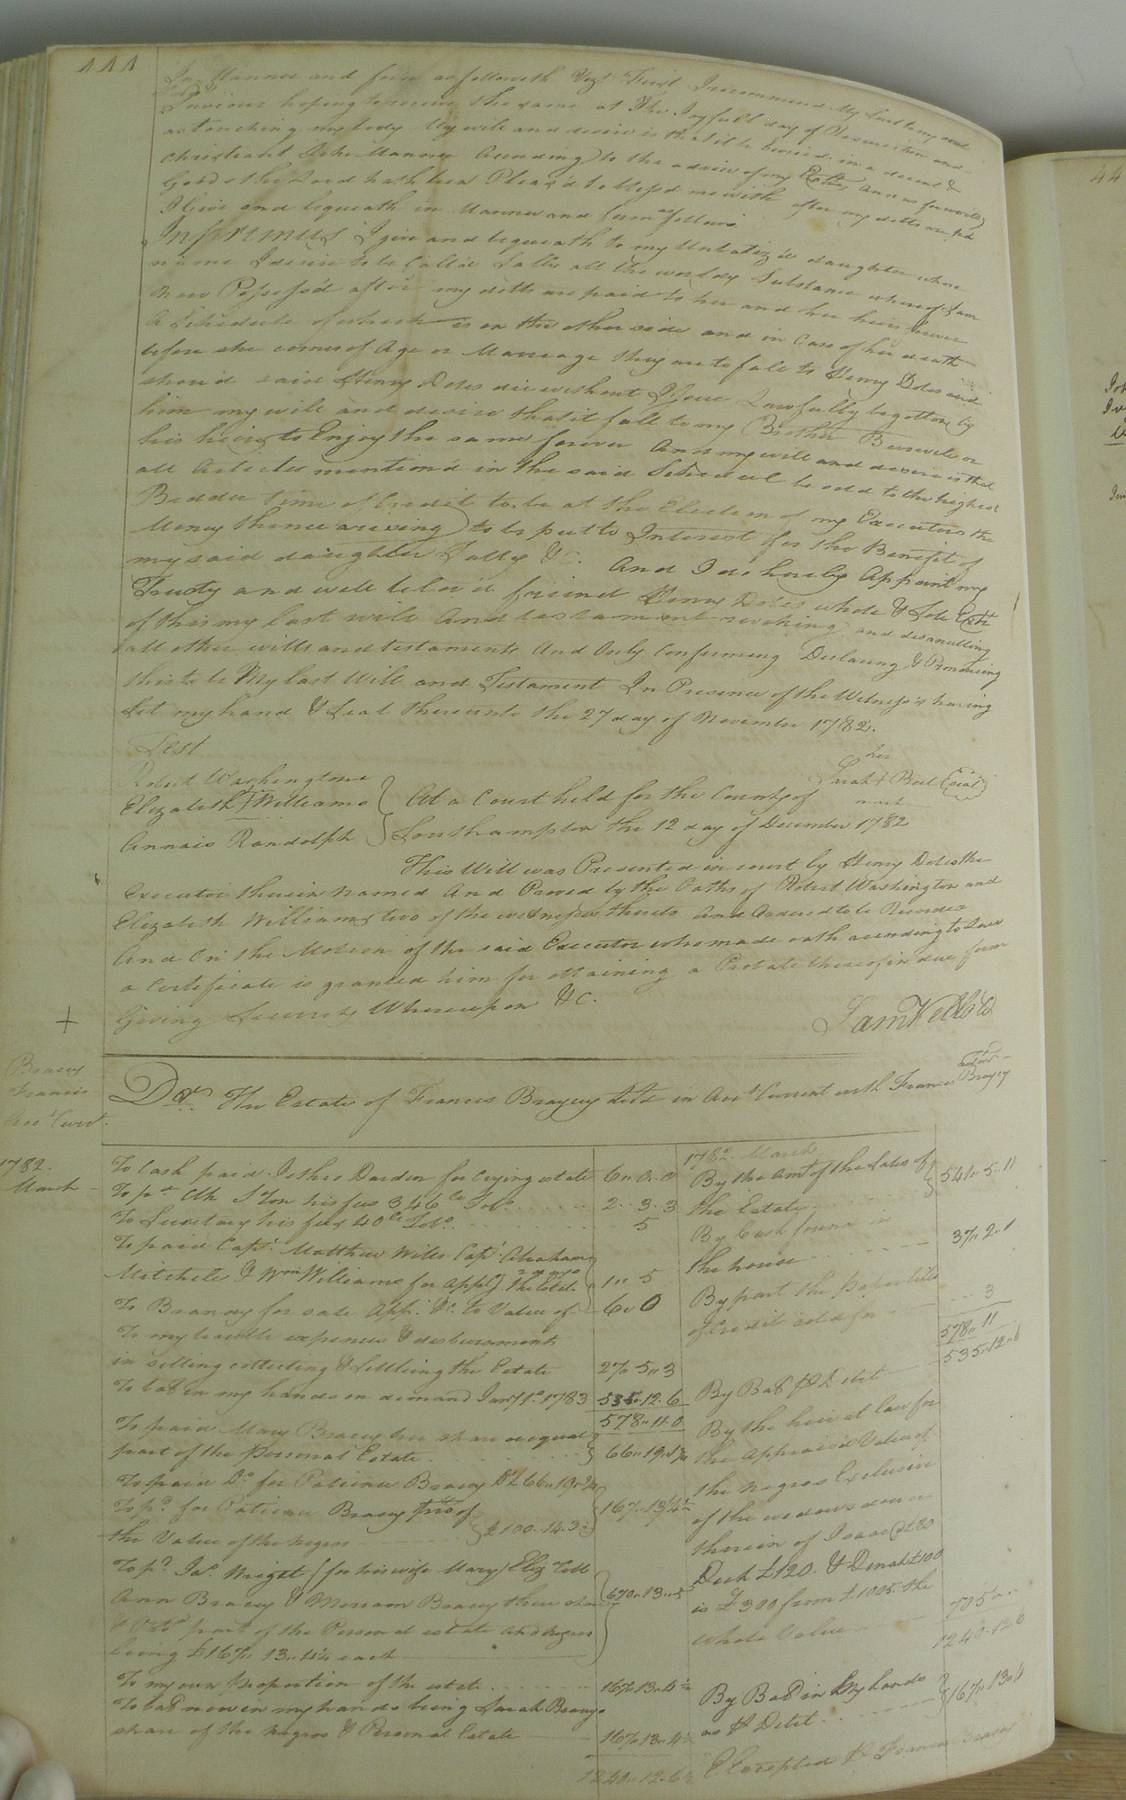 444
In Manner and form as followeth Vizt. First I recommend My Soul to my
Saviour hoping to receive the same at The Joyfull day of Resurrection and
as touching my body My will and desire is that it be buried in a decent &
Christian like Manner Acording to the advice of my Extr. And as for worldly
Goods the Lord hath been Pleas'd to bless'd me with after my debts are pd
I Give and bequeath in Manner and form as follows
Infirimus I give and bequeath to my daughter whose
name I desire to be Call'd Salley all the worldly Substance whereof I am
now Possess'd after my debts are paid to her and her heirs forever
A Schedule of which is on the other side and in Case of her death
before she comes of Age or Marriage they are to fall to Henry Doles and
shou'd said Henry Doles die without Issue Lawfully begotten by
him my will and desire that it fall to my Brother Burwell or
his heirs to Enjoy the same forever And my will and desire is that
all Articles mention'd in the said Schedul be sold to the highest
Bidder time of Credit to be at the Election of my Executors the
Money thence arising to be put to Interest for the Benefit of
my said daughter Sally &c. And I do hereby Appoint my
Trusty and well belov'd friend Henry Doles whole & Sole Extr
of this my last will And testament revoking and disanulling
all other wills and testaments And Only Confirming Declaring & Pronouncing
this to be My last Will and Testament In Presence of the Witness's having
Set my hand & Seal thereunto the 27 day of November 1782.
Test
Robert Washingtone
Elizabeth + Williams
Annais Randolph
her
Sarah + Bell Seal
mark
At a Court held for the County of
Southampton the 12 day of December 1782
This Will was Presented in court by Henry Doles the
Executor therein Named And Proved by the Oaths of Robert Washington and
Elizabeth Williams two of the witnesses thereto And Ordered to be Recorded
And On the Motion of the said Executor who made oath according to Law
a Certificate is granted him for obtaining a Probate thereof in due form
Giving Security Whereupon &c.
Sam Kello CC
+
Bracey
Francis
Acct. Curt.
Dr. The Estate of Francis Bracey decd. in Acct. Current with Francis Bracy
1782.
March
To Cash paid Jethro Darden for Crying estate 6" 0" 0
To pd. Clk S'Ton his fees 346 lb Tobo. 2. 3. 3
To Secretary his fees 40 lb Tobo. 5
To paid Capt. Matthew Wills Capt. Abraham
Mitchell & Wm. Williams for Appg. the Estate 1" 5
To Brandy for sale App. &c. to Value of 6" 0
To my trouble expences & disbursments
in selling collecting & Settling the Estate 27" 5" 3
To bal. in my hands on demand Jany. 1st. 1783 535" 12. 6
578" 11. 0
To paid Mary Bracey her share an equal
part of the Personal Estate 66" 19" 1
To paid Do. for Patience Bracey
To pd. for Patience Bracey
the Value of the negroes £100. 14. 3
167" 13" 4
To pd. Jas. Wright (for his wife Mary) Eliz.
Ann Bracey & Merriam Bracey their share
part of the Personal estate and negroes
being £167" 13" 4½ each
670" 13"
To my own Proportion of the estate 167" 13" 4½
To bal. now in my hands being Sarah Bracey's
share of the negroes & Personal Estate 167" 13" 4½
1240" 12" 6½
1782 March
By the Amt. of the Sales of
the Estate 541" 5" 11
By Cash found in
the house 37" 2" 1
By part the Paper
of Credit sold for 3
578" 11
By Bal. pr. Debit 535" 12" 6
By the heir at law for
the Appraised Value of
the negroes Exclusive
of the widows dower
therein of Isaac @ £80
Dick £120. & Dinah £100
is £300 from £1005 the
whole Value 705"
1240. 12. 6
By Bal. in My hands
as pr. Debit 167" 13" 4
E Excepted pr. Francis Bracey